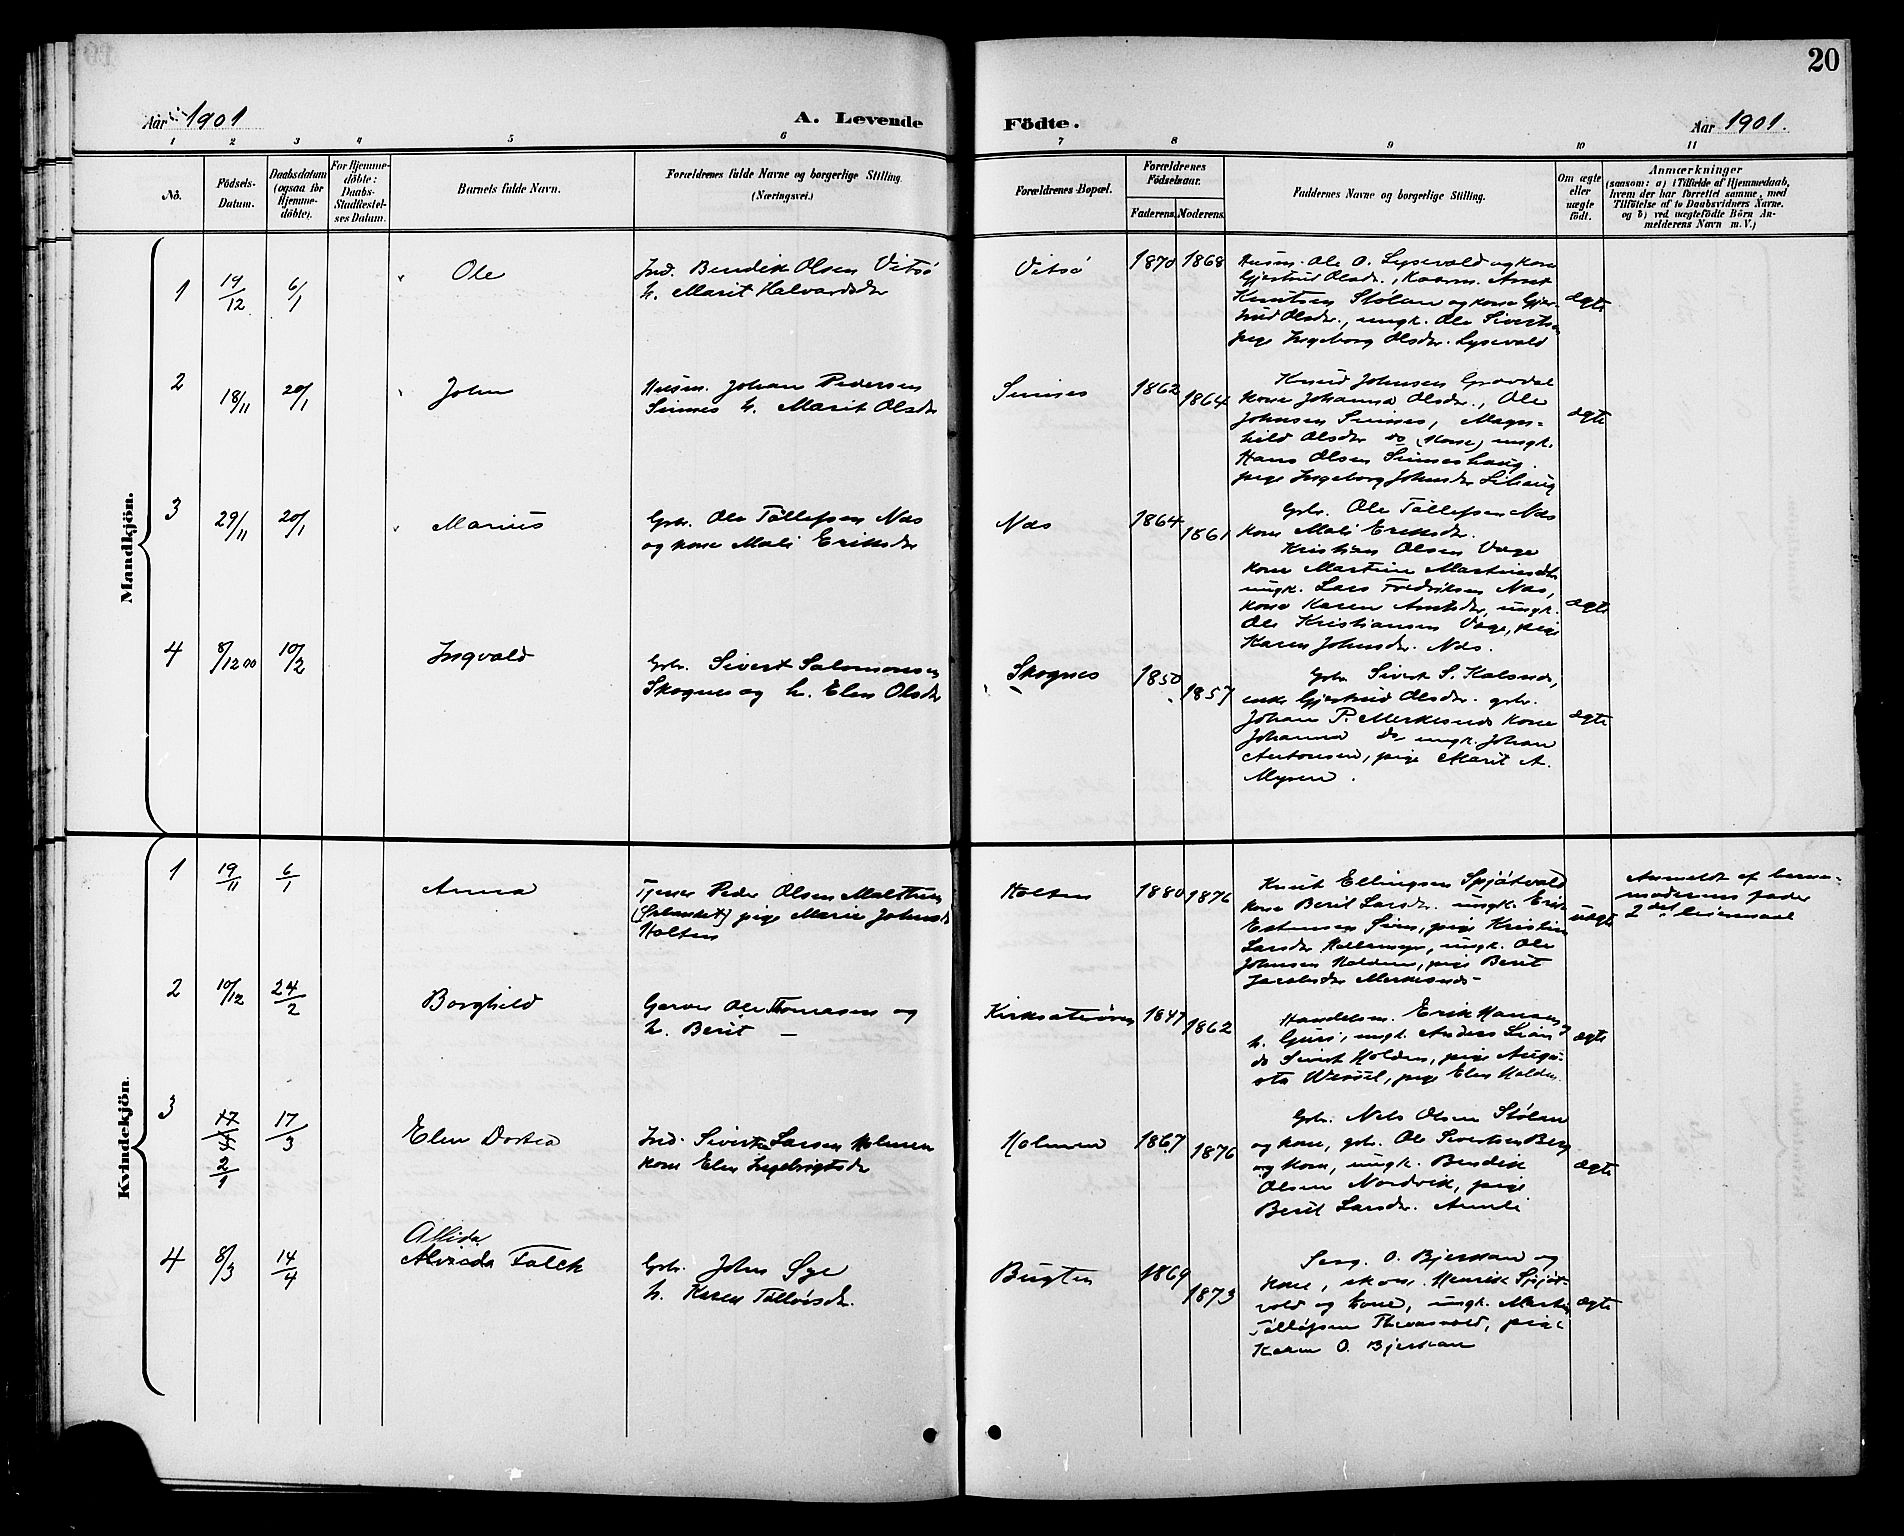 20
Aar 1901
A. Levende
Födte.
Aar 1901.
1 2 3 4 5 6 7 8 9 10 11
No.
Födsels-
Datum.
Daabsdatum
(ogsaa for
Hjemme-
döbte).
For Hjemme-
döbte:
Daabs-
Stadfæstel-
ses Datum.
Barnets fulde Navn.
Forældrenes fulde Navne og borgerlige Stilling.
(Næringsvei.)
Forældrenes Bopæl.
Forældrenes
Födselsaar.
Faderens. Moderens.
Faddernes Navne og borgerlige Stilling.
Om ægte
eller
uægte
födt.
Anmærkninger
(saasom: a) i Tilfælde af Hjemmedaab,
hvem der har forrettet samme, med
Tilföielse af to Daabsvidners Navne.
og b) ved uægtefödte Börn An-
melderens Navn m. V.)
Mandkjön.
1
19/12
6/1
Ole
Ind. Bendik Olsen Vitsø
h. Marit Halvardsdr
Vitsø
1870 1868
Husm. Ole O. Lysevold og kone
Gjertrud Olsdr., Kaarm. Arnt
Knutsen Stølan og kone Gjer-
trud Olsdr., ungk. Ole Sivertsen
pige Ingeborg Olsdr. Lysevold
ægte
2
18/11
20/1
John
Husm. Johan Pedersen
Sinnes h. Marit Olsdr
Sinnes
1862 1864
Knud Johnsen Gravdal
kone Johanna Olsdr., Ole
Johnsen Sinnes, Magn-
hild Olsdr do (kone) ungk.
Hans Olsen Sinneshaug.
pige Ingeborg Johnsdr Lihaug
ægte
3
29/11
20/1
Marius
Gbr. Ole Tøllefsen Næs
og kone Mali Eriksdr
Næs
1864 1861
Gbr. Ole Tøllefsen Næs
kone Mali Eriksdr.
Kristian Olsen Vage
kone Martine Martinusdtr
ungk. Lars Fredriksen Næs,
kone Karen Arntsdr, ungk.
Ole Kristiansen Vage, pige
Karen Johnsdr. Næs.
ægte
4
8/12 00
10/2
Ingvald
Gbr. Sivert Salomonsen
Skognes og h. Elen Olsdr
Skognes
1850 1857
Gbr Sivert S. Kalsnes,
enke Gjertrud Olsdr. gbr.
Johan P. Merkesnes kone
Johanna do ungk. Johan
Antonsen, pige Marit A.
Myren.
ægte
Kvindekjön.
1
19/11
6/1
Anna
Tjener Peder Olsen
pige Marie Johnsdr
Holten
Holten
1880 1876
Knut Ellingsen Spjøtvold
kone Berit Larsdr. ungk. Erik
Estensen pige Kristine
Larsdr ungk. Ole
Johnsen Holden, pige Berit
Jacobsdr Merkesnes
uægte
Anmeldt af barne-
moderens fader
2det leiermaal
2
10/12
24/2
Borghild
Garver Ole Thomasen og
h. Berit —
Kirksæterøren
1847 1862
Handelsm. Erik Hansen,
h. Guri, ungk. Anders
do Sivert Holden, pige Augu-
sta Wessel, pige Elen Holden.
ægte
3
17/4
2/1
17/3
Elen Dortea
Ind. Sivert Larsen Holmen
kone Elen Ingebrigtsdr
Holmen
1867 1876
Gbr. Nels Olsen Stølan
og kone, gbr. Ole Sivertsen Berg
og kone, ungk. Bendik
Olsen Nordvik, pige
Berit Larsdr. Aunli
ægte
4
8/3
14/4
Allida
Alvieda Falck
Gbr. John Øye
h. Karen Tølløvsdr.
Bugten
1869 1873
Serg. O. Bjerkan og
kone, skom. Henrik Spjøt-
vold og kone, ungk. Martin
Tøllefsen pige
Karen O. Bjerkan
ægte